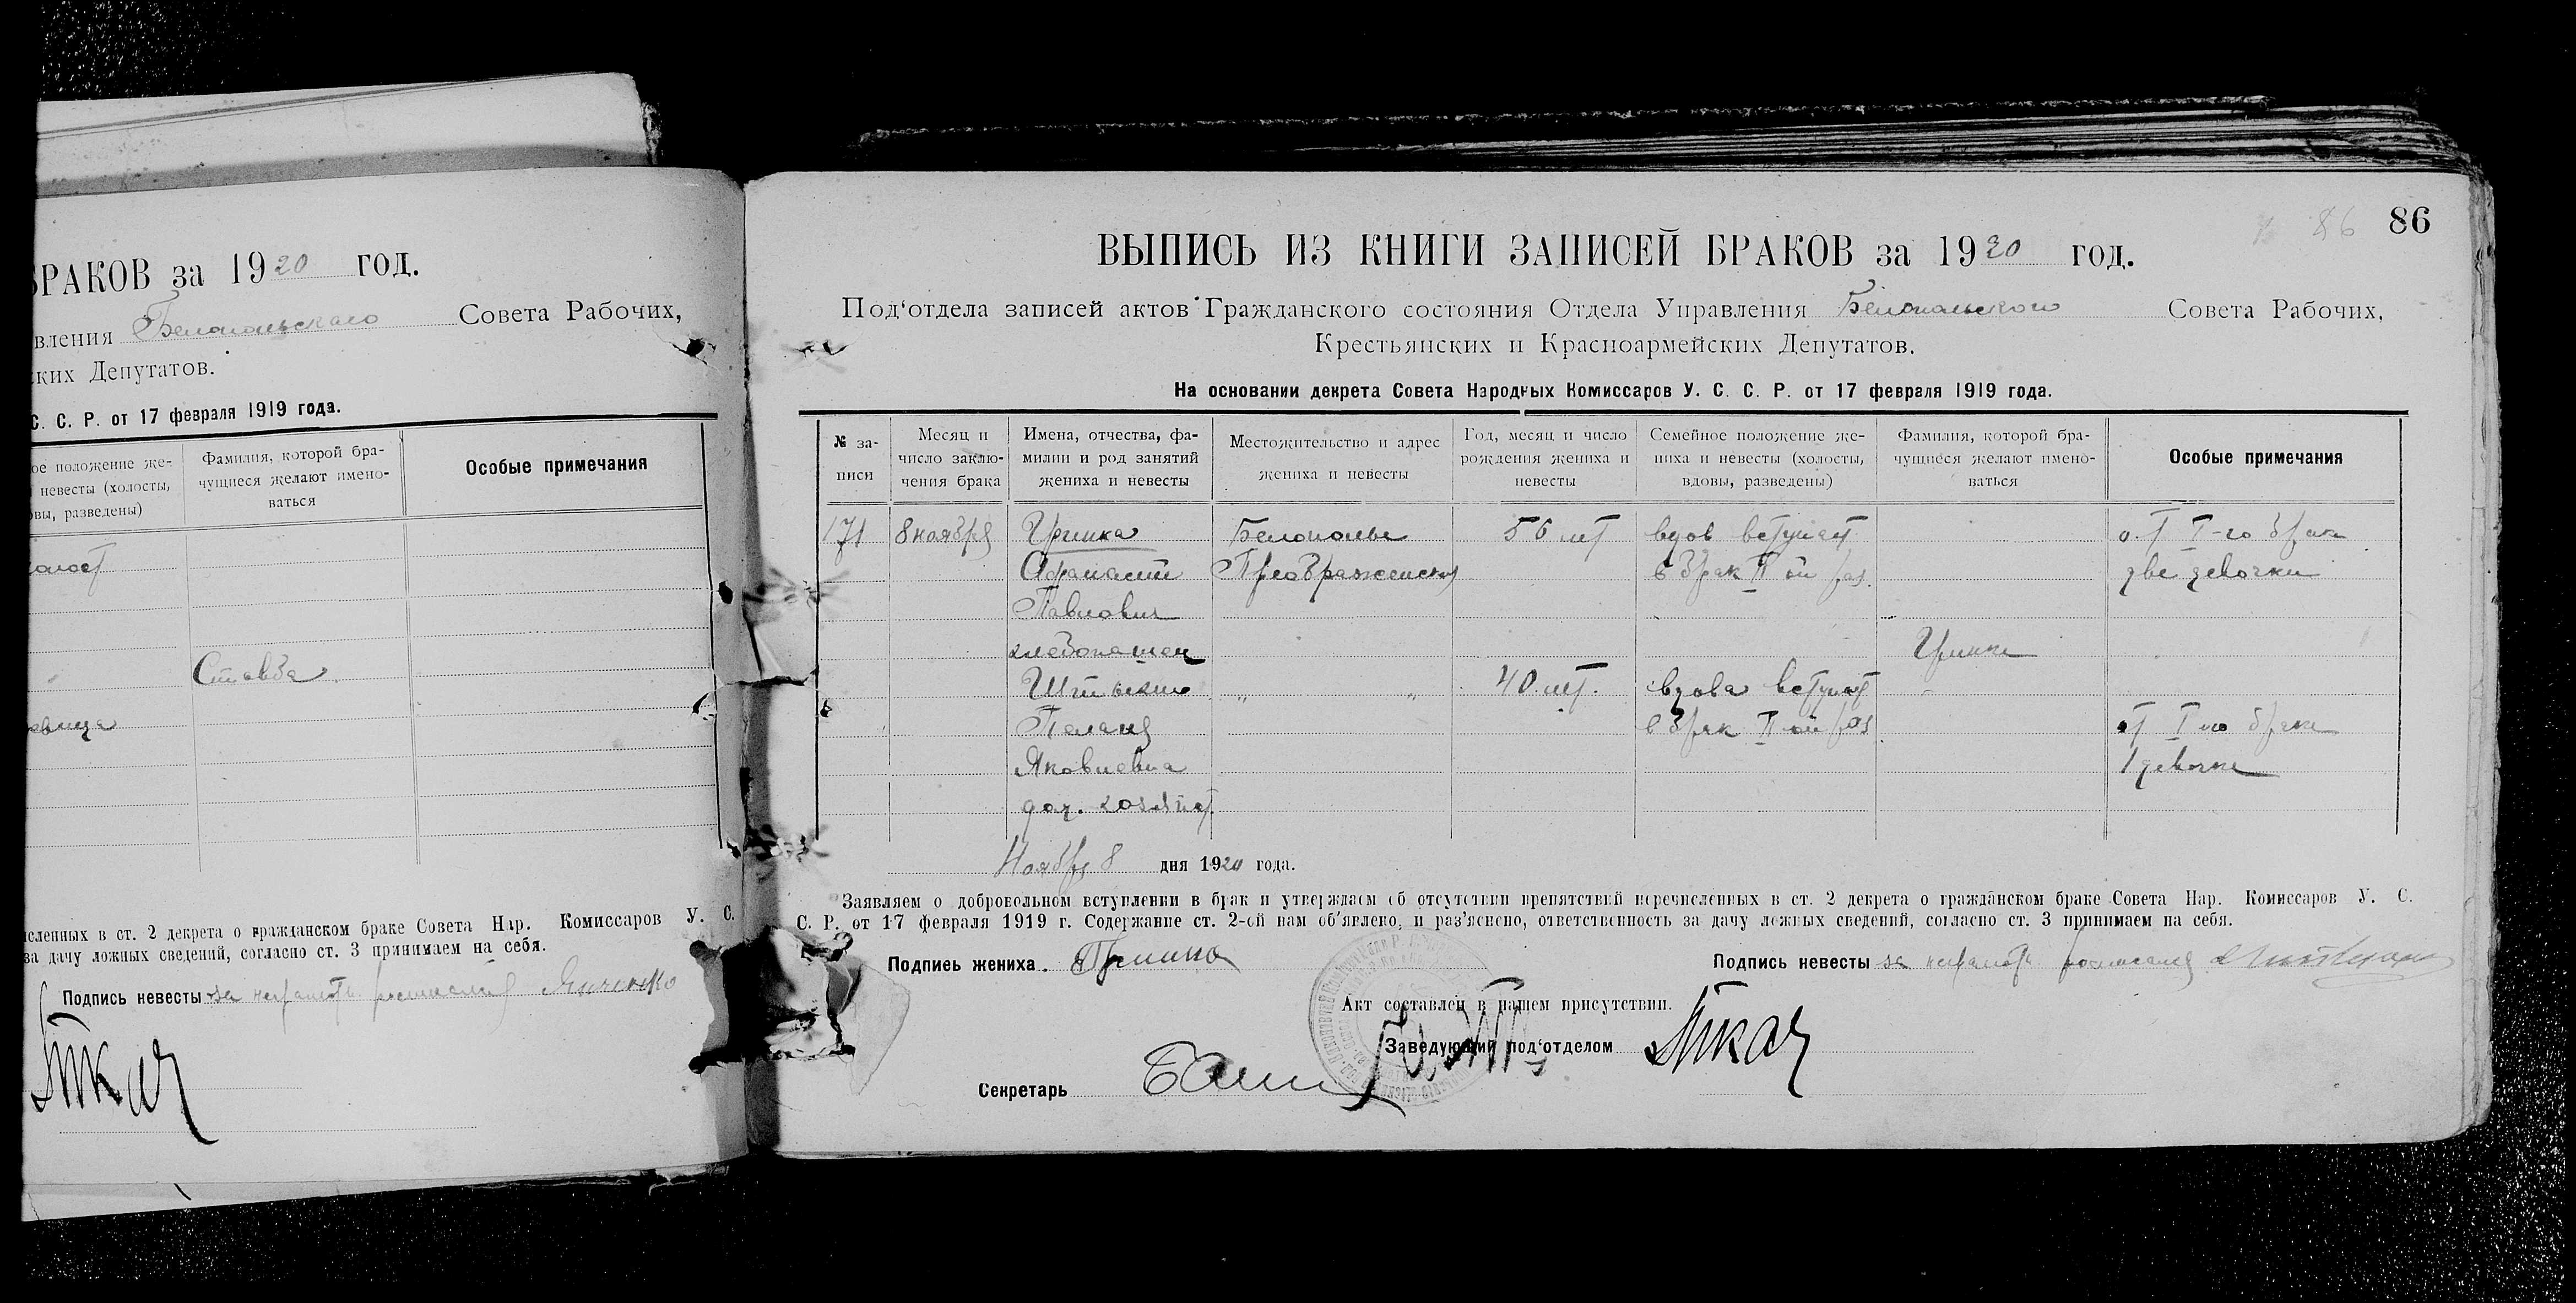 БРАКОВ за 1920 год.
вления Белопольскаго Совета Рабочих,
ских Депутатов.
С. С. Р. от 17 февраля 1919 года.
ое положение же-
невесты (холосты,
овы, разведены)
Фамилия, которой бра-
чущиеся желают имено-
ваться
Особые примечания
олост
евица
исленных в ст. 2 декрета о гражданском браке Совета Нар. Комиссаров У. С.
за дачу ложных сведений, согласно ст. 3 принимаем на себя.
Подпись невесты за неграмотн.
Ткач
86
86
ВЫПИСЬ ИЗ КНИГИ ЗАПИСЕЙ БРАКОВ за 1920 год.
Под‘отдела записей актов Гражданского состояния Отдела Управления Белопольского Совета Рабочих,
Крестьянских и Красноармейских Депутатов.
На основании декрета Совета Народных Комиссаров У. С. С. Р. от 17 февраля 1919 года.
№ за-
писи
Месяц и
число заклю-
чения брака
Имена, отчества, фа-
милии и род занятий
жениха и невесты
Местожительство и адрес
жениха и невесты
Год, месяц и число
рождения жениха и
невесты
Семейное положение же-
ниха и невесты (холосты,
вдовы, разведены)
Фамилия, которой бра-
чущиеся желают имено-
ваться
Особые примечания
171 8 ноября Белополье 56 лет вдов вступает от I-го брака
Афанасий Преображенская в брак II ой раз. две девочки
Павлович
хлебопашец
" " 40 лет. вдова вступает
Пелагея в брак II ой раз от I го брака
Яковлевна 1 девочка
дом. хозяйст.
Ноября 8 дня 1920 года.
Заявляем о добровольном вступлении в брак и утверждаем об отсутствии препятствий перечисленных в ст. 2 декрета о гражданском браке Совета Нар. Комиссаров У. С.
С. Р. от 17 февраля 1919 г. Содержание ст. 2-ой нам об‘явлено, и раз‘яснено, ответственность за дачу ложных сведений, согласно ст. 3 принимаем на себя.
Подпись жениха.
Подпись невесты за неграмотн.
Акт составлен в нашем присутствии.
Заведующий под‘отделом Ткач
Секретарь